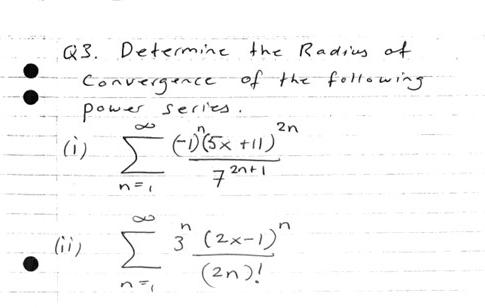 Q3. Determine the Radius of
Convergence of the following
power series.
(i) \sum_{n=1}^{\infty} \frac{(-1)^n (5x+11)^{2n}}{7^{2n+1}}
(ii) \sum_{n=1}^{\infty} 3^n \frac{(2x-1)^n}{(2n)!}